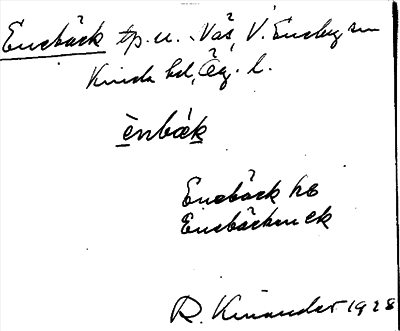 Enebäck tp. u. Väs, V. Eneby sn
Kinda hd, Ög. l.
ènbæk
Enebäck hs
Enebäcken ek
R. Kinander 1928